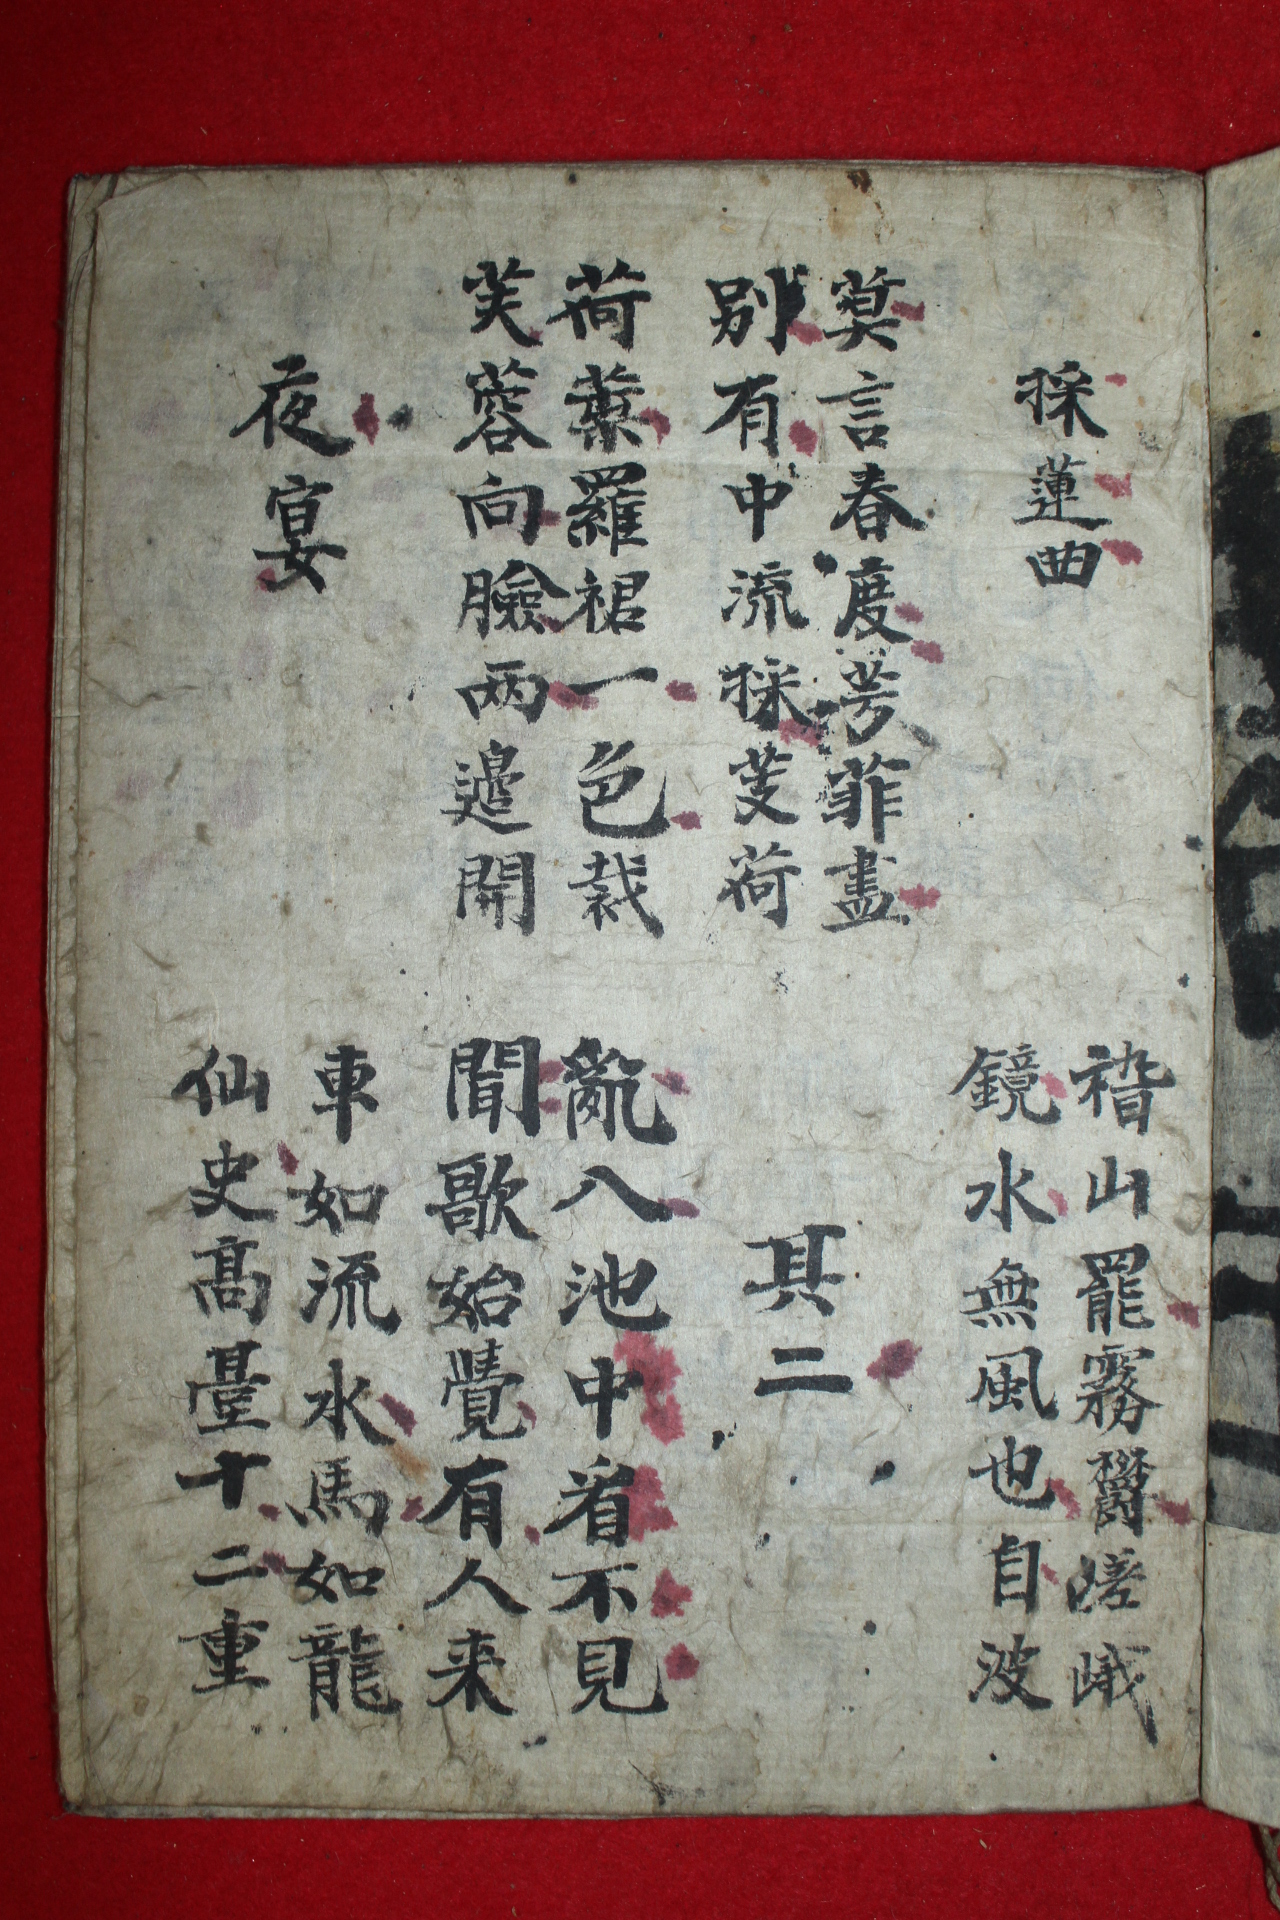 採蓮曲
稽山罷霧鬱嵯峨
鏡水無風也自波
莫言春度芳菲盡
別有中流採芰荷
其二
荷葉羅裙一色裁
芙蓉向臉兩邊開
亂入池中看不見
聞歌始覺有人来
夜宴
車如流水馬如龍
仙史髙臺十二重